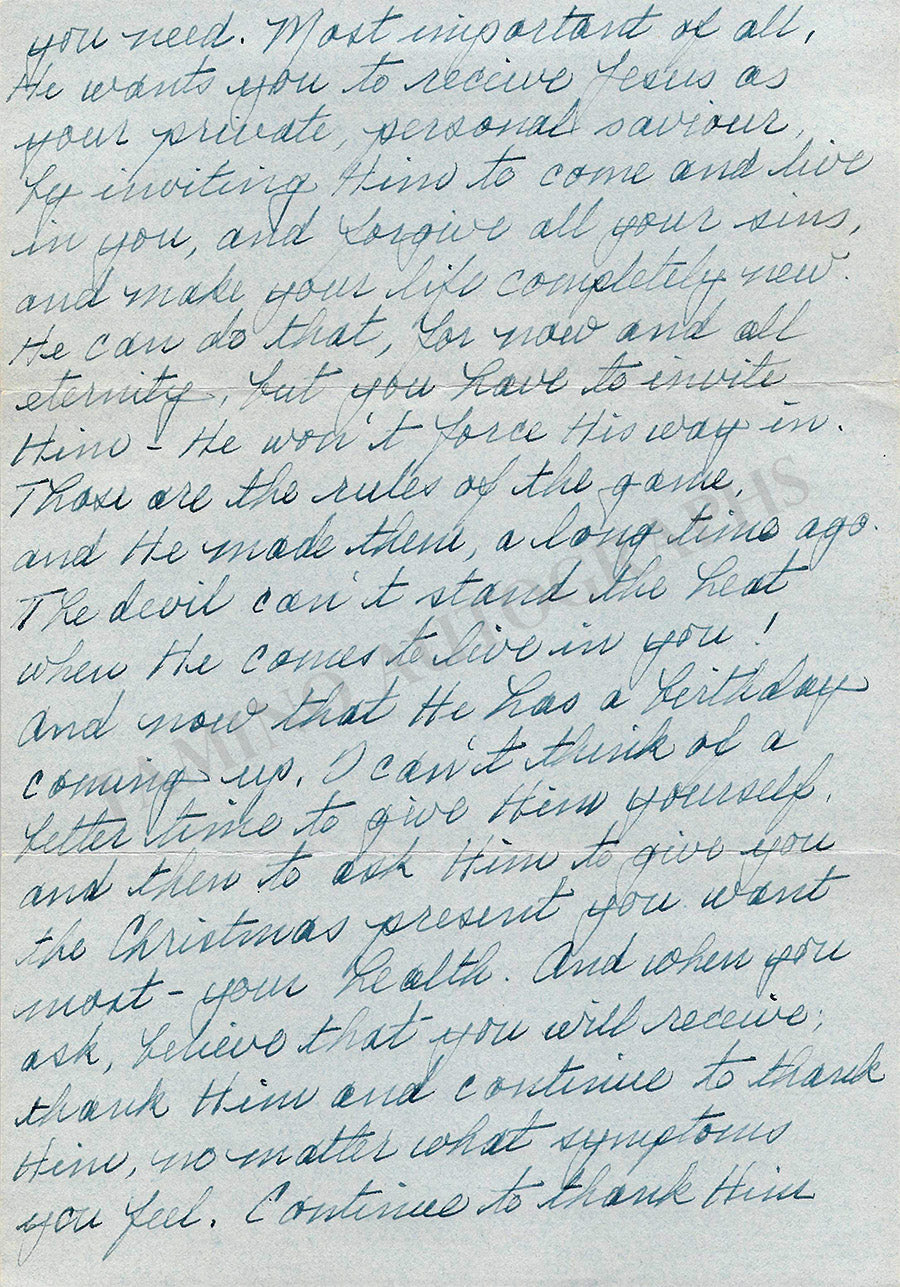 you need. Most important of all,
He wants you to receive Jesus as
your private, personal saviour,
by inviting Him to come and live
in you, and forgive all your sins,
and make your life completely new.
He can do that, for now and all
eternity, but you have to invite
Him - He won't force His way in.
Those are the rules of the game,
and He made them, a long time ago.
The devil can't stand the heat
when He comes to live in you!
And now that He has a birthday
coming up, I can't think of a
better time to give Him yourself,
and then to ask Him to give you
the Christmas present you want
most - your health. And when you
ask, believe that you will receive;
thank Him and continue to thank
Him, no matter what symptoms
you feel. Continue to thank Him
TAMINO AUTOGRAPHS